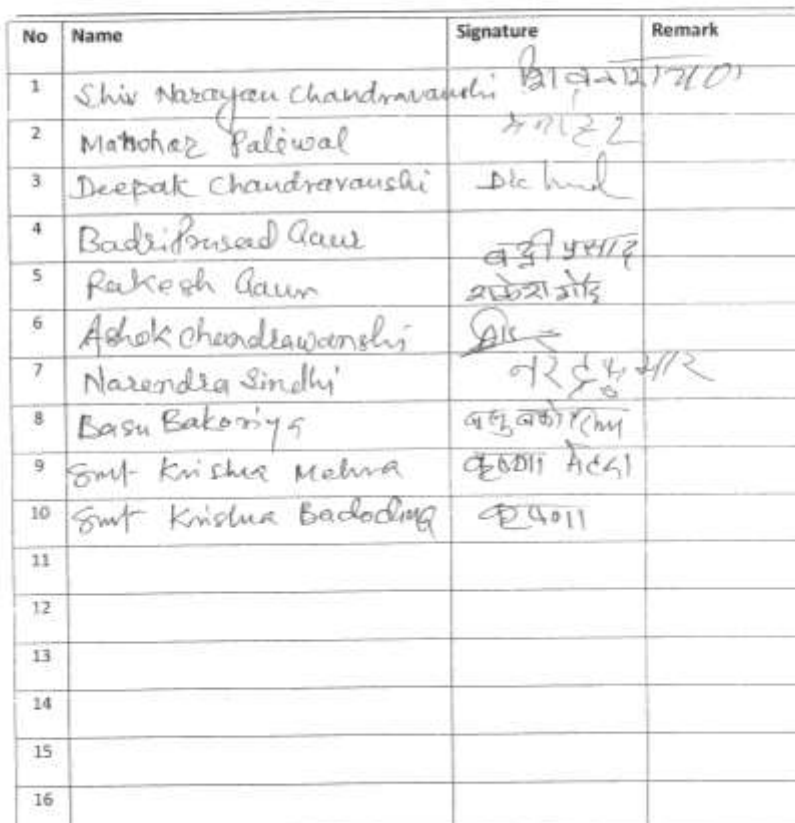 No Name Signature Remark
1 Shiv Narayan Chandravanshi शिवनारायण
2 Manohar Paliwal मनोहर
3 Deepak Chandravanshi
4 BadriPrasad Gaur बद्री प्रसाद
5 Rakesh Gaur राकेश गौर
6 Ashok Chandrawanshi
7 Narendra Sindhi नरेंद्र कुमार
8 Basu Bakoriya
9 Smt Krishna Mehra कृष्णा मेहरा
10 Smt Krishna कृष्णा
11
12
13
14
15
16